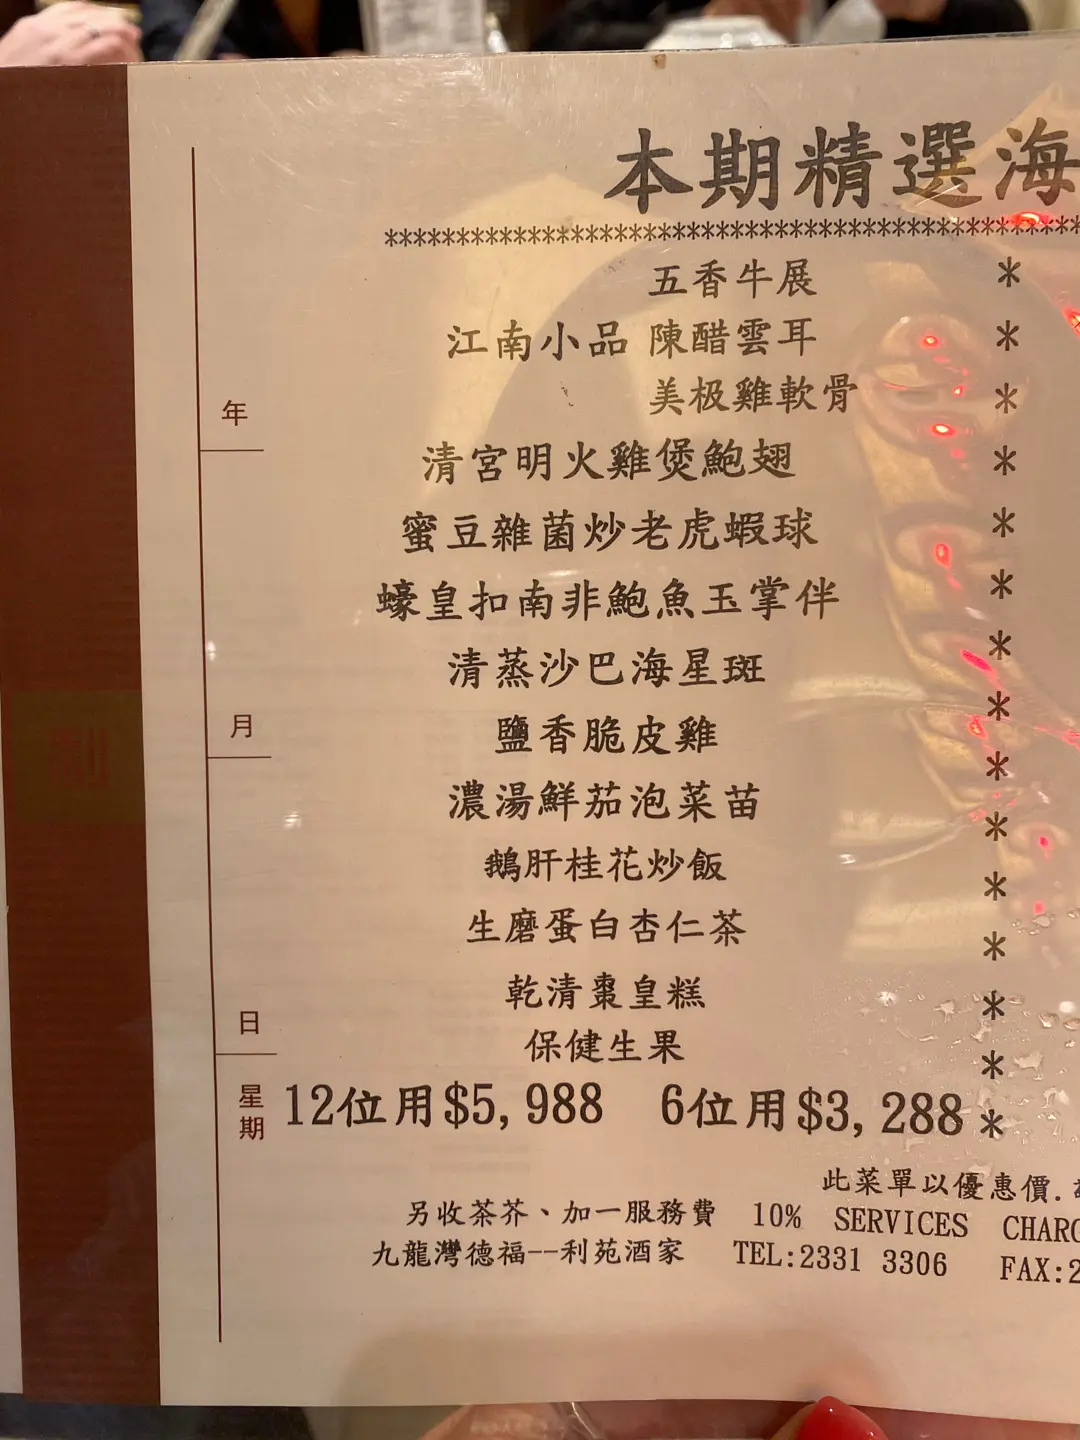 本期精選海
****************************************************
五香牛展 *
江南小品 陳醋雲耳 *
美极雞軟骨 *
清宮明火雞煲鮑翅 *
蜜豆雜菌炒老虎蝦球 *
蠔皇扣南非鮑魚玉掌伴 *
清蒸沙巴海星斑 *
鹽香脆皮雞 *
濃湯鮮茄泡菜苗 *
鵝肝桂花炒飯 *
生磨蛋白杏仁茶 *
乾清棗皇糕 *
保健生果 *
12位用$5,988 6位用$3,288 *
此菜單以優惠價.
另收茶芥、加一服務費 10% SERVICES CHARG
九龍灣德福--利苑酒家 TEL:2331 3306 FAX:2
年
月
日
星
期